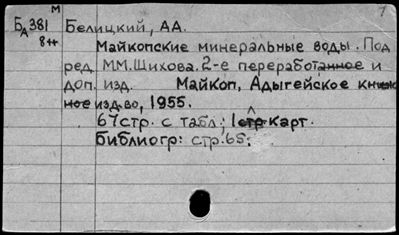 М
БА381 Белицкий, А.А.
8н
Майкопские минеральные воды. Под
ред. М.М.Шихова. 2-е переработанное и
доп. изд. Майкоп, Адыгейское книж-
ное изд-во, 1955.
67стр. с табл.; 1 стр карт.
библиогр: стр.65.